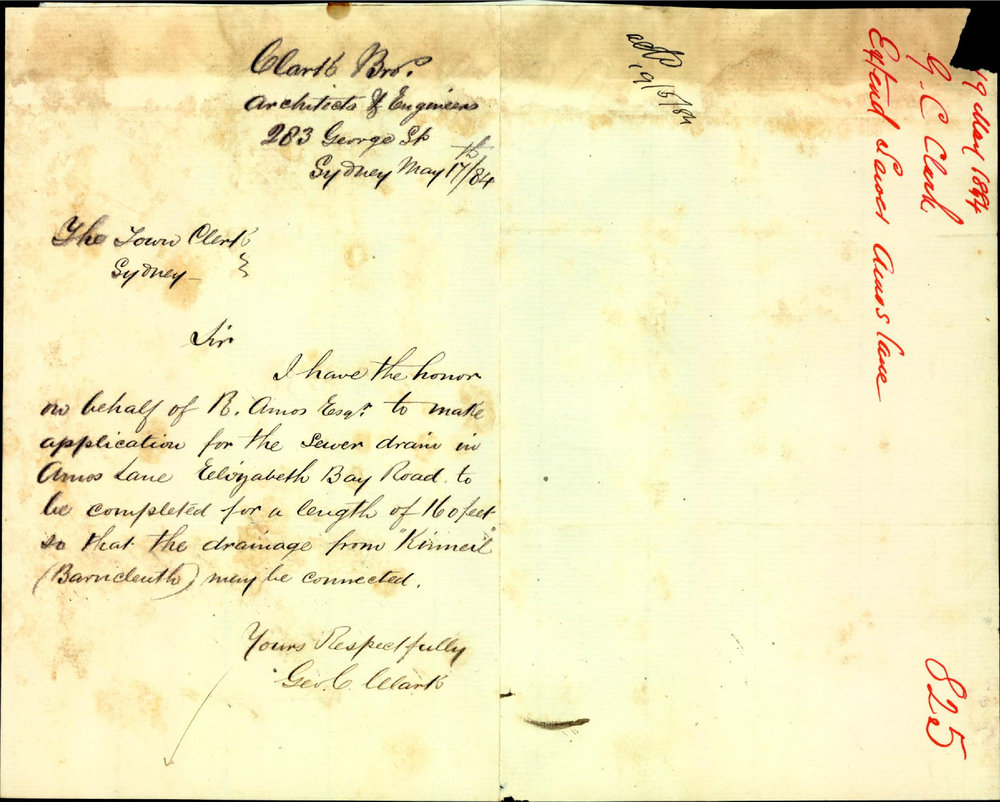 Clark Bros.
Architects & Engineers
283 George St
Sydney May 17th/84
The Town Clerk
Sydney -
Sir
I have the honor
on behalf of R. Amos Esqr. to make
application for the Sewer drain in
Amos Lane Elizabeth Bay Road. to
be completed for a length of 160 feet
so that the drainage from "Kinneil"
(Barncleuth) may be connected.
Yours Respectfully
Geo. C. Clark
19/5/84
19 May 1884
G. C Clark
Extend Sewer Amos lane
825